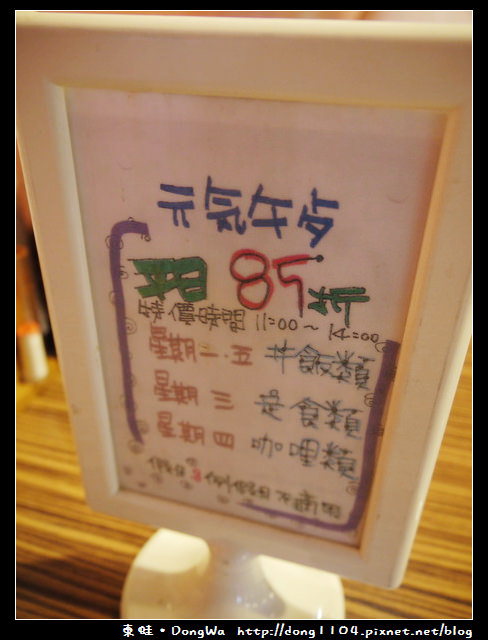 元気午歺
超85折
特價時間 11:00~14:00
星期一.五 丼飯類
星期三 定食類
星期四 咖哩類
假日&例假日不適用
東蛙·DongWa http://dong1104.pixnet.net/blog